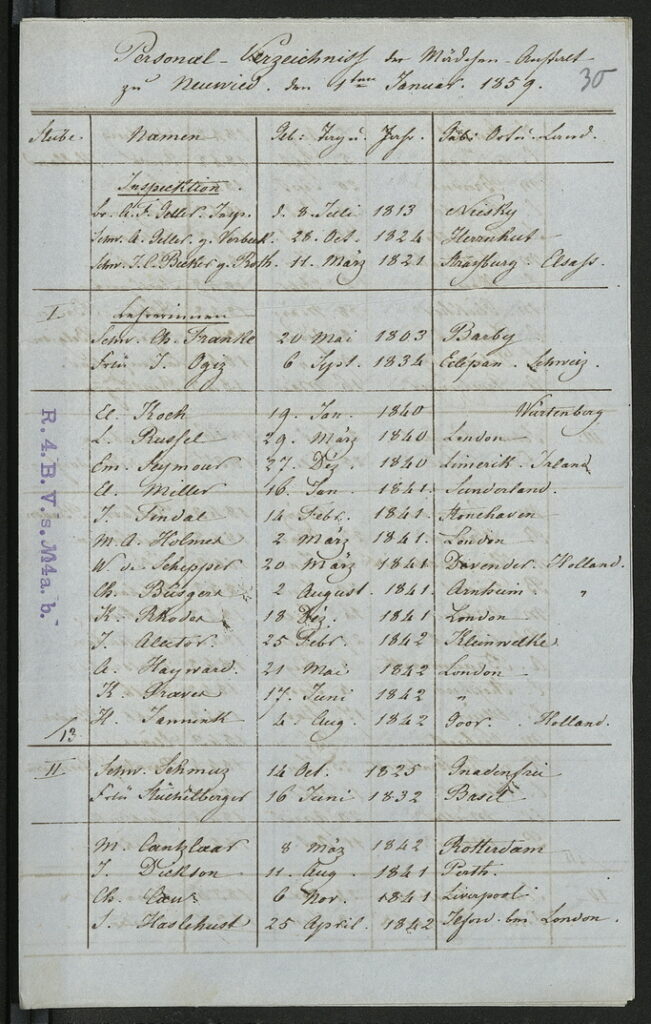 Personal-Verzeichniss der Mädchen-Anstalt
zu Neuwied. den 1ten Januar. 1859.
30
Stube. Namen Geb: Tag u. Jahr. Geb: Ort u. Land.
Inspecktion.
br. A. F. Geller. Insp. d. 8 Juli 1813 Niesky
Schw. A. Geller. g. Verbeek. 28. Oct. 1824 Herrnhut
Schw. J. C. Becker g. Roth. 11. März 1821 Strassburg. Elsass.
I. Lehrerinnen
Schw. Ch. Franke 20 Mai 1803 Barby
Frln J. Ogiz 6 Sept. 1834 Schweiz.
El. Koch 19. Jan. 1840 Würtenberg
L. Russel 29. März 1840 London
Em. Seymour 27. Dez 1840 Limerik. Irland
El. Miller 16. Jan 1841. Sunderland.
J. Tindal 14 Febr. 1841. Stonehaven
M. A. Holmes 2 März 1841. London
W. de Schepper 20 März 1841 Devender. Holland.
Ch. Büsgers 2 August. 1841. Arnheim "
K. Rhodes 18 Dez. 1841 London
J. Alector. 25 Febr. 1842 Kleinwelke
A. Hayward. 21 Mai 1842 London
K. 17. Juni 1842 "
H. Jannink 4. Aug 1842 Goor. Holland.
13
II Schw. Schmuz 14 Oct. 1825 Gnadenfrei
Frln Stückelberger 16 Juni 1832 Basel
M. Cantzlaar 8 März 1842 Rotterdam
J. Dickson 11. Aug 1841 Perth.
Ch. 6 Nov. 1841 Liverpool
S. Haslehust 25 April. 1842 bei London.
R. 4. B. V. s. M4a. b.